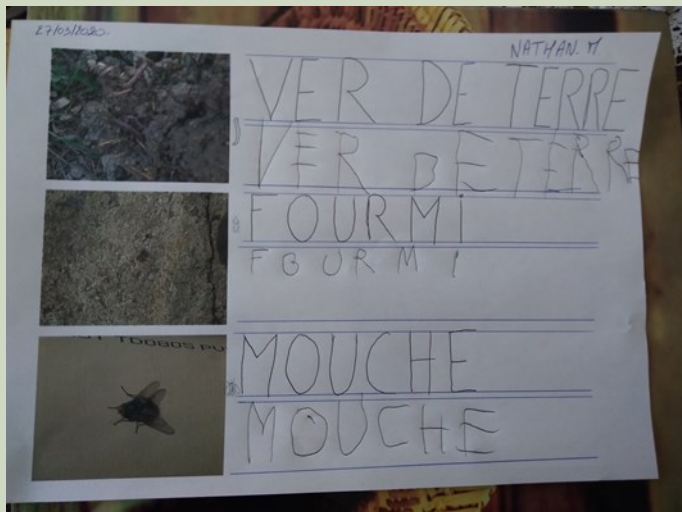 27/03/2020
NATHAN. M
VER DE TERRE
VER DE TERRE
FOURMI
FOURMI
MOUCHE
MOUCHE